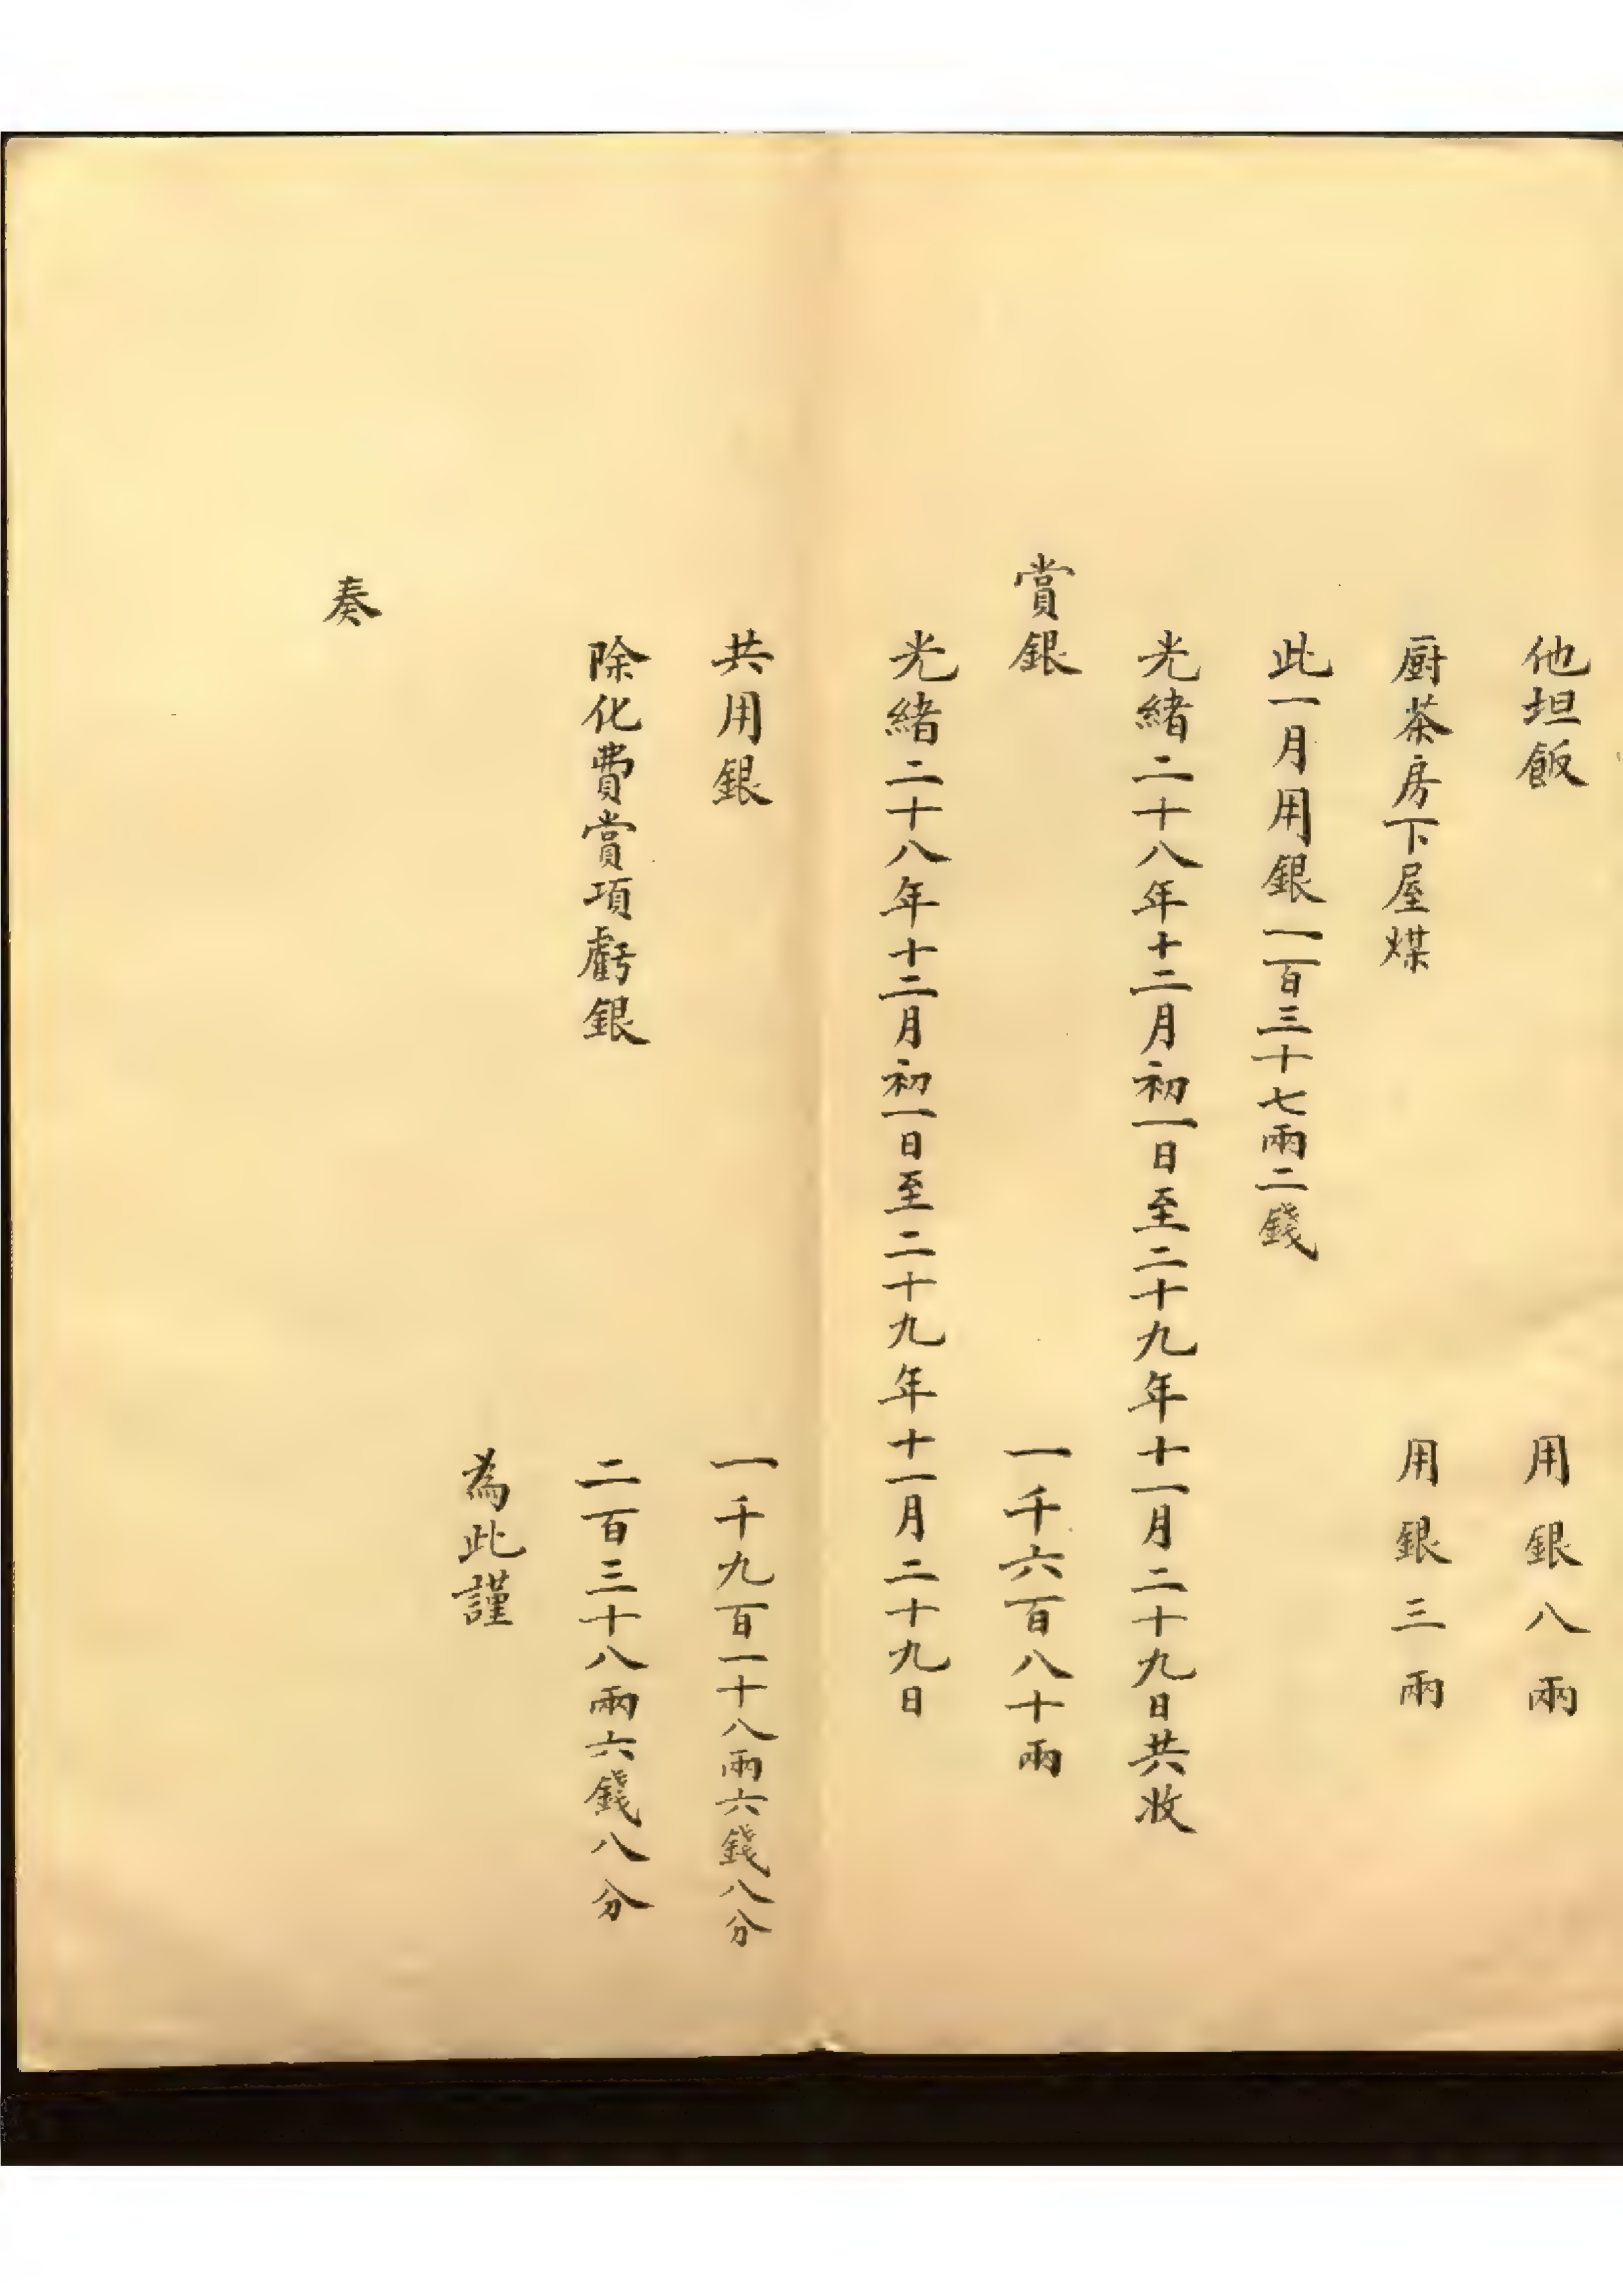 他坦飯　用銀八兩
厨茶房下屋煤　用銀三兩
此一月用銀一百三十七兩二錢
光緒二十八年十二月初一日至二十九年十一月二十九日共收
賞銀　一千六百八十兩
光緒二十八年十二月初一日至二十九年十一月二十九日
共用銀　一千九百一十八兩六錢八分
除化費賞項虧銀　二百三十八兩六錢八分
為此謹
奏